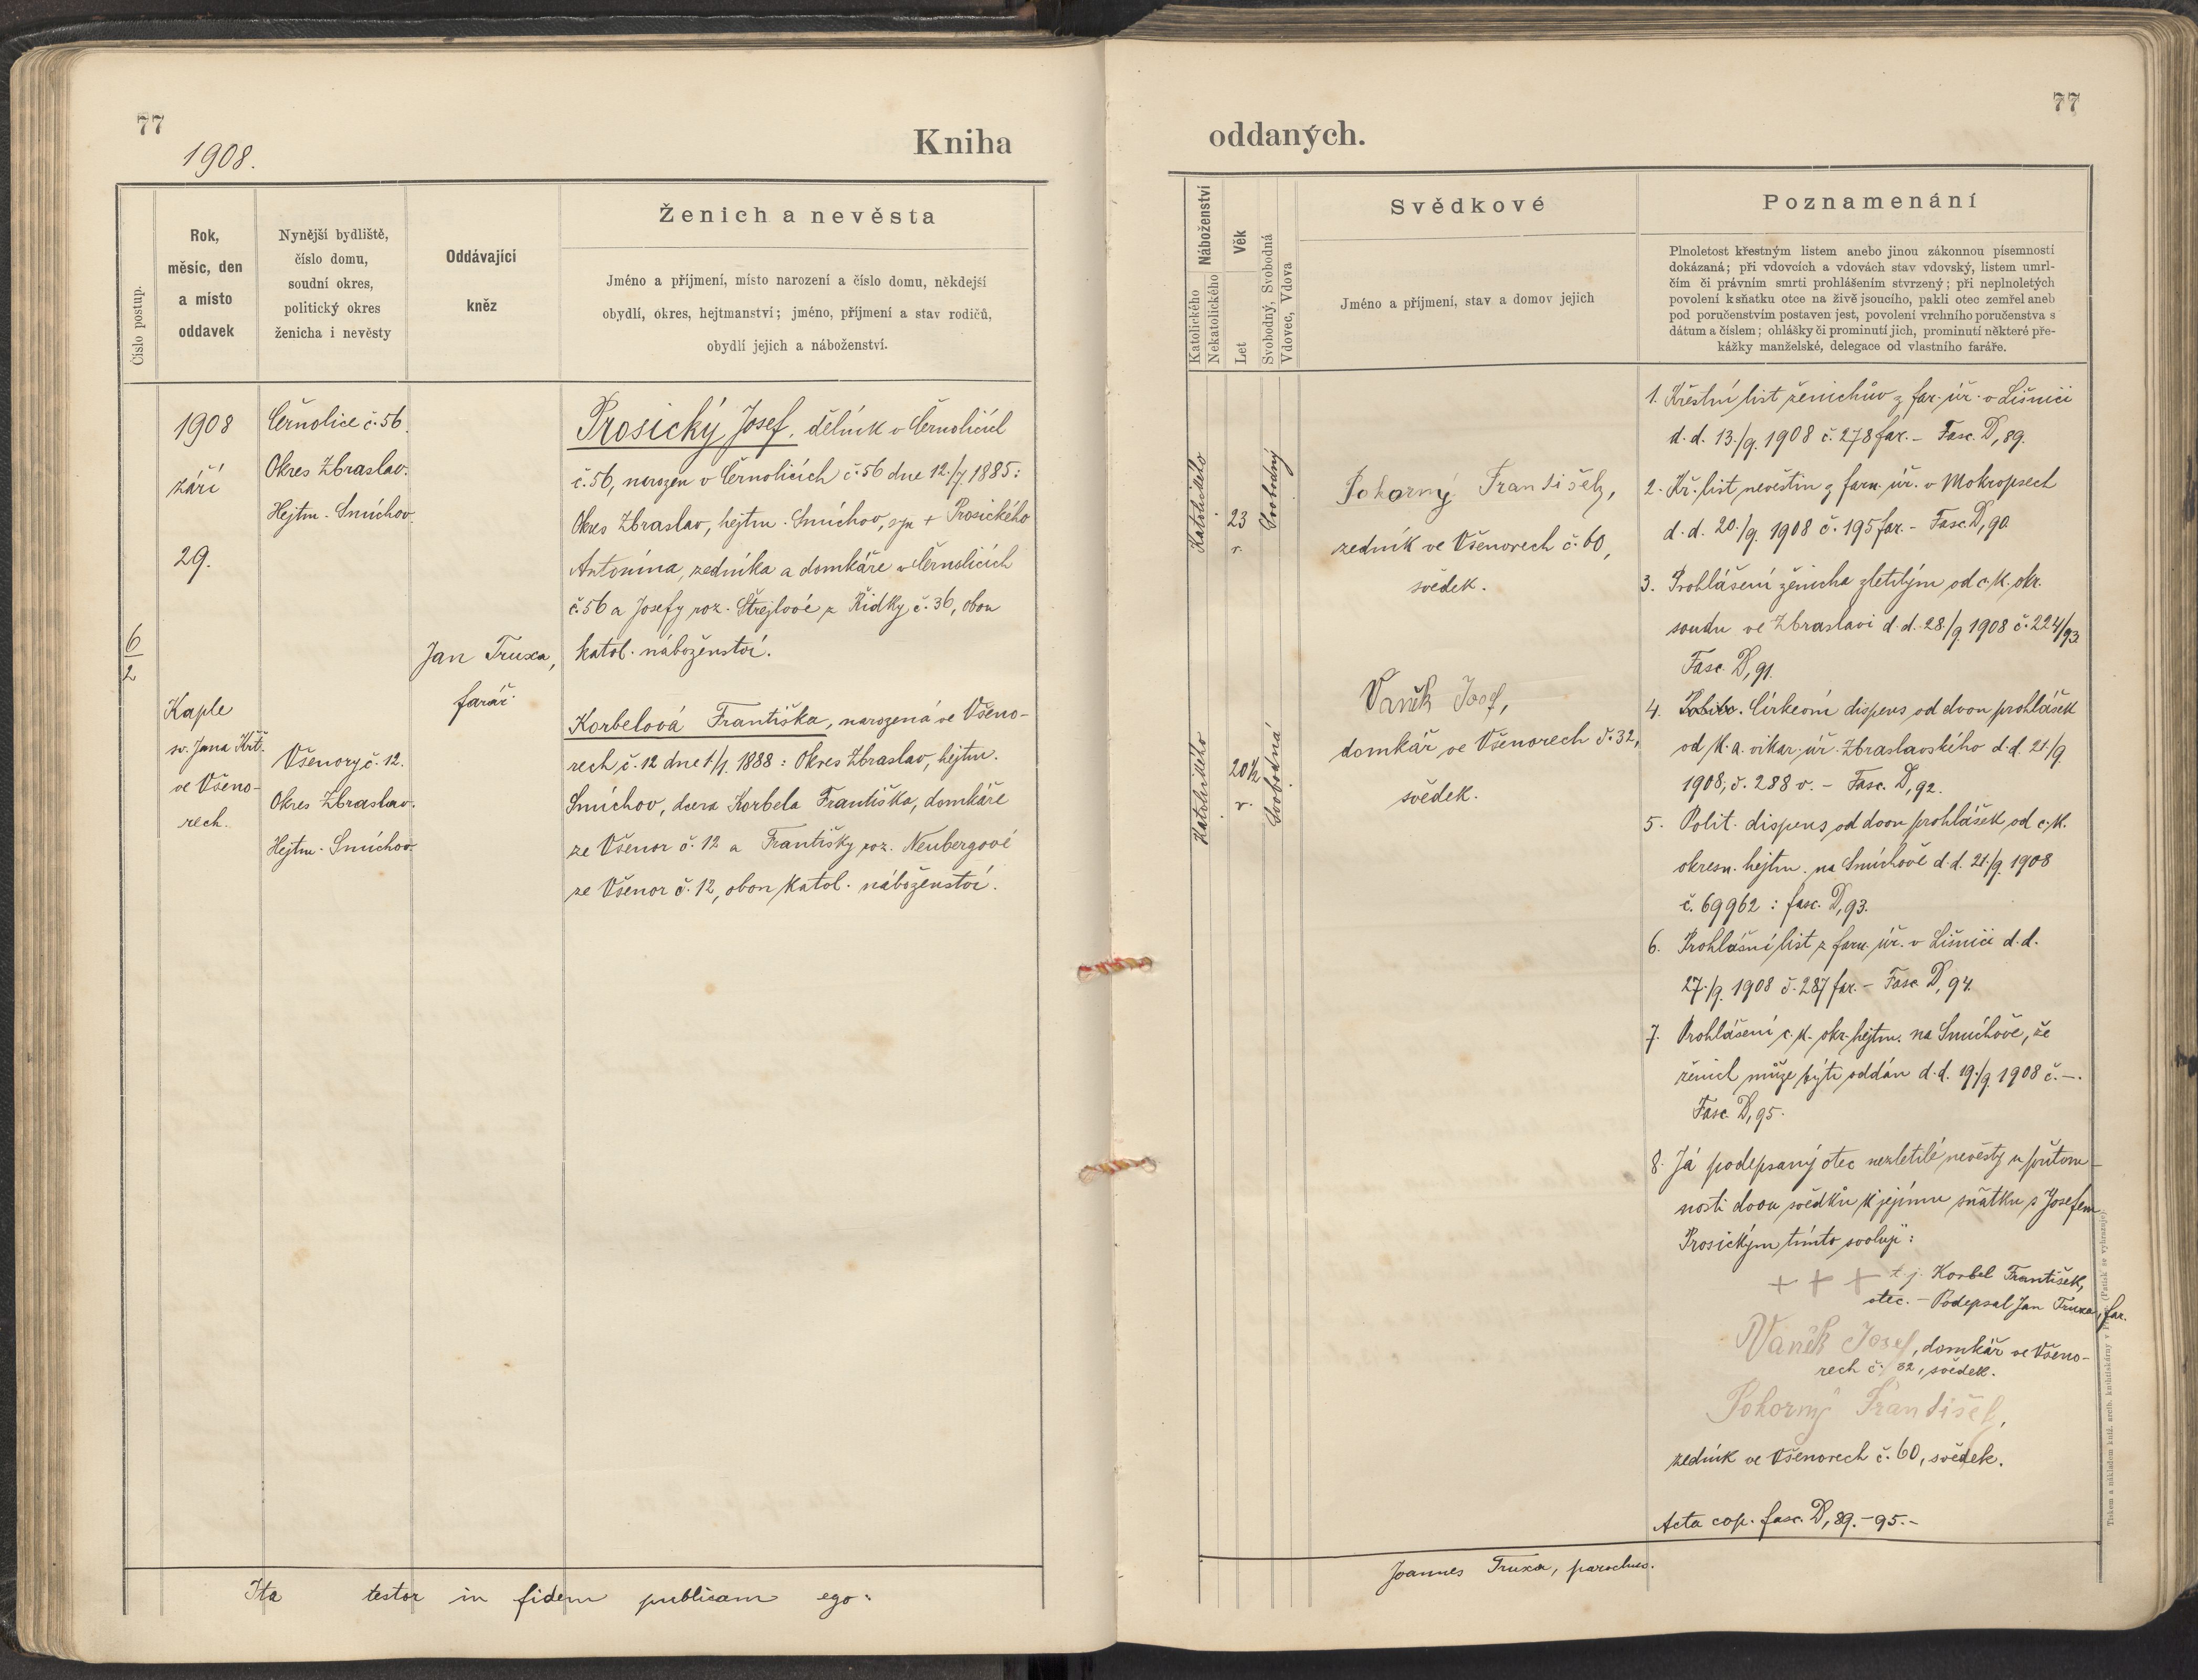 77
1908.
Kniha
Číslo postup.
Rok,
měsíc, den
a místo
oddavek
Nynější bydliště,
číslo domu,
soudní okres,
politický okres
ženicha i nevěsty
Oddávající
kněz
Ženich a nevěsta
Jméno a příjmení, místo narození a číslo domu, někdejší
obydlí, okres, hejtmanství; jméno, příjmení a stav rodičů,
obydlí jejich a náboženství.
6
2
1908
září
29.
Kaple
sv. Jana Křt.
ve Všeno-
rech.
Černolice č. 56.
Okres Zbraslav.
Hejtm. Smíchov.
Všenory č. 12.
Okres Zbraslav.
Hejtm. Smíchov.
Jan Truxa,
farář.
Prosický Josef, dělník v Černolicích
č. 56, narozen v Černolicích č. 56 dne 12./7. 1885:
Okres Zbraslav, hejtm. Smíchov, syn + Prosického
Antonína, zedníka a domkáře v Černolicích
č. 56 a Josefy roz. Štrejlové z Řidky č. 36, obou
katol. náboženství.
Korbelová Františka, narozená ve Všeno-
rech, č. 12 dne 1/1. 1888: Okres Zbraslav, hejtm.
Smíchov, dcera Korbela Františka, domkáře
ze Všenor č. 12 a Františky roz. Neubergové
ze Všenor č. 12, obou katol. náboženství.
Ita testor in fidem publicam ego:
77
oddaných.
Náboženství
Katolického
Nekatolického
Věk
Let
Svobodný, Svobodná
Vdovec, Vdova
Svědkové
Jméno a příjmení, stav a domov jejich
Poznamenání
Plnoletost křestným listem anebo jinou zákonnou písemností
dokázaná; při vdovcích a vdovách stav vdovský, listem umrl-
čím či právním smrti prohlášením stvrzený; při neplnoletých
povolení k sňatku otce na živě jsoucího, pakli otec zemřel aneb
pod poručenstvím postaven jest, povolení vrchního poručenstva s
dátum a číslem; ohlášky či prominutí jich, prominutí některé pře-
kážky manželské, delegace od vlastního faráře.
Katolického
23
r.
Svobodný
Katolického
20 1/2
r.
Svobodná
Pokorný František,
zedník ve Všenorech č. 60,
svědek.
Vaněk Josef,
domkář ve Všenorech č. 32,
svědek.
1. Křestní list ženichův z far. úř. v Lišnici
d. d. 13./9. 1908 č. 278 far. – Fasc. D, 89.
2. Kř. list nevěstin z farn. úř. v Mokropsech
d. d. 20./9. 1908 č. 195 far. – Fasc. D, 90.
3. Prohlášení ženicha zletilým od c. k. okr.
soudu ve Zbraslavi d. d. 28./9 1908 č. 224/93
Fasc. D, 91.
4. Církevní dispens od dvou prohlášek
od k. a. vikar. úř. Zbraslavského d. d. 21./9
1908, č. 288 v. – Fasc. D, 92.
5. Polit. dispens od dvou prohlášek od c. k.
okresn. hejtm. na Smíchově d. d. 21./9. 1908
č. 69962: fasc. D, 93.
6. Prohlášní list z farn. úř. v Lišnici d. d.
27./9. 1908 č. 287 far. – Fasc. D, 94.
7. Prohlášení c. k. okr. hejtm. na Smíchově, že
ženich může býti oddán d. d. 19./9. 1908 č. –.
Fasc. D, 95.
8. Já podepsaný otec nezletilé nevěsty u přítom-
nosti dvou svědků k jejímu sňatku s Josefem
Prosickým tímto svoluji:
+ + + t. j. Korbel František,
otec. – Podepsal Jan Truxa, far.
Vaněk Josef, domkář ve Všeno-
rech č. 32, svědek.
Pokorný František,
zedník ve Všenorech č. 60, svědek.
Acta cop. fasc. D, 89.–95.–
Joannes Truxa, parochus.